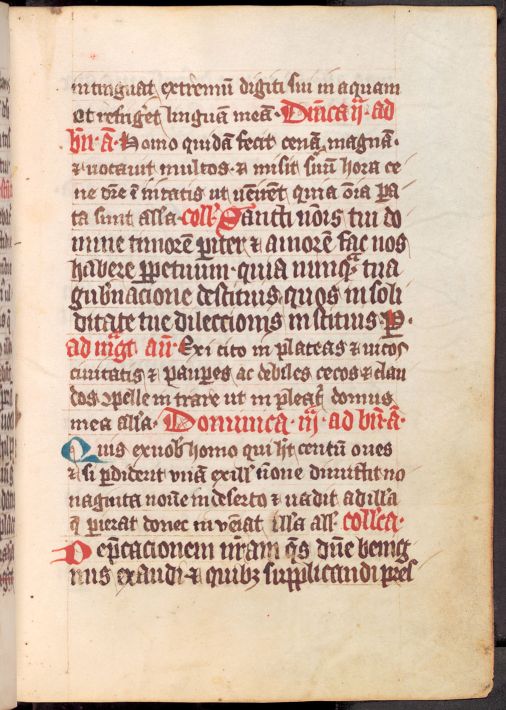 intinguat extremū digiti sui in aquam
et refriget linguā meā. Dn̄ica ij. ad
bn̄. a᷒. Homo quidā fecit cenā magnā.
⁊ uocauit multos. ⁊ misit seruū suū hora ce
ne dīe ī uitatis ut uenirēt quia oīa pa
ta sunt alla. coll. Sancti nōis tui do
mine timorē pariter ⁊ amorē fac nos
habere ꝑpetuum. quia nunqᷓ tua
gubnacione destituis quos in soli
ditate tue dileccionis instituis P.
ad mᷓgt. an̄. Exi cito in plateas ⁊ uicos
ciuitatis ⁊ pauꝑes ac debiles cecos ⁊ clau
dos ꝯpelle intrare ut inpleat᷑ domus
mea alla. Dominica. iij. ad bn̄. ā.
Quis exuob homo qui ht centū oues
⁊ si ꝑdiderit unā exill nōne dimittit no
naginta nouē indeserto ⁊ uadit ad illā
q̄ perierat donec inueniat illā all. collca.
Depcacionem nrām qs dn̄e benig
nus exaudi. ⁊ quibꝫ supplicandi pres